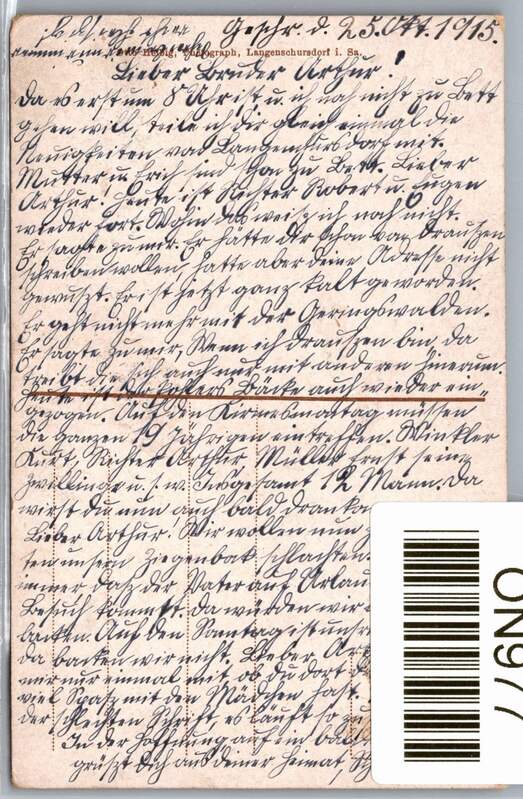 Geschr. d. 25. Okt. 1915.
Photograph, Langenschursdorf i. Sa.
Lieber Bruder Arthur!
Da es erst um 8 Uhr ist u. ich noch nicht zu Bett
gehen will, teile ich dir gleich einmal die
Neuigkeiten von Langenchursdorf mit.
Mutter u. Erich sind schon zu Bett. Lieber
Arthur! Heute ist Richter Robert u. Eugen
wieder fort. Wohin das weisz ich noch nicht.
Er sagte zu mir. Er hätte dir schon von drauszen
schreiben wollen, hatte aber deine Adresse nicht
gewuszt. Er ist jetzt ganz kalt geworden.
Er geht nicht mehr mit der Geringswalden.
Er sagte zu mir, Wenn ich drauszen bin, da
treibt die sich auch nur mit anderen herum.
Heute ist der Bäcke auch wieder ein-
gezogen. Auf den Kirmesmontag müssen
die ganzen 19 Jährigen eintreffen. Winkler
Kurt, Richter Arthur, Müller Ernst sein
Zwillinge u. s. w. Insgesamt 12 Mann. Da
wirst du nun auch bald dran
Lieber Arthur! Wir wollen nun
ten unsern Ziegenbok schlachten.
immer dasz der Vater auf Urlau
Besuch kommt. Da würden wir
backen. Auf den Sonntag ist
da backen wir nicht. Lieber Art
nur einmal mit, ob du dort
viel Spasz mit den Mädchen hast.
der schlechten Schrift, es läuft so zu
In der Hoffnung auf ein bal
grüszt Dich aus deiner Heimat,
ON977